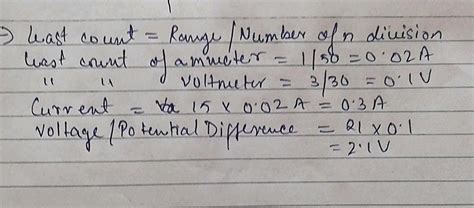 → Least count = Range / Number of n division
Least count of ammeter = 1/50 = 0.02 A
" " Voltmeter = 3/30 = 0.1 V
Current = 15 x 0.02 A = 0.3 A
Voltage / Potential Difference = 21 x 0.1
= 2.1 V